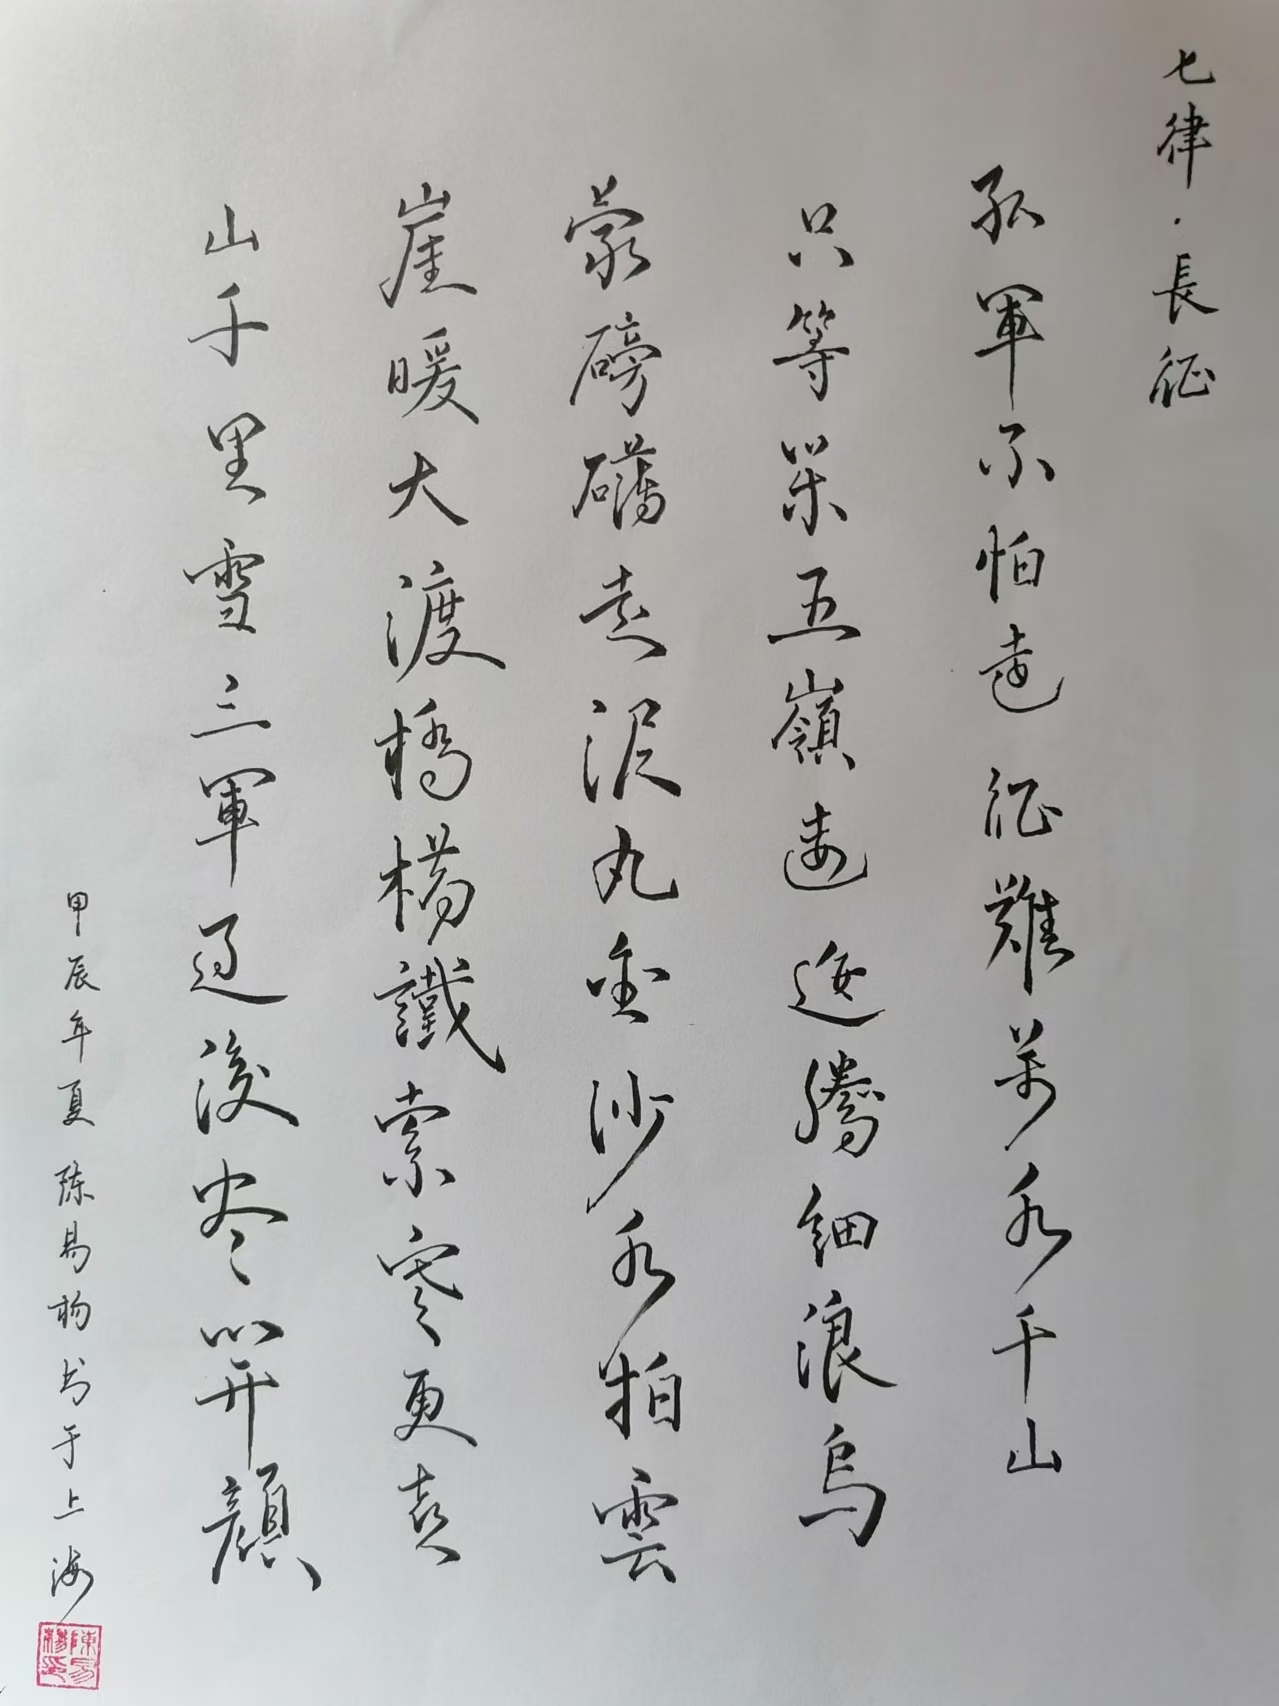 七律·長征
紅軍不怕遠征難萬水千山
只等閑五嶺逶迤騰細浪烏
蒙磅礴走泥丸金沙水拍雲
崖暖大渡橋橫鐵索寒更喜
山千里雪三軍過後尽開顏
甲辰年夏陈易杨书于上海
陳易楊印